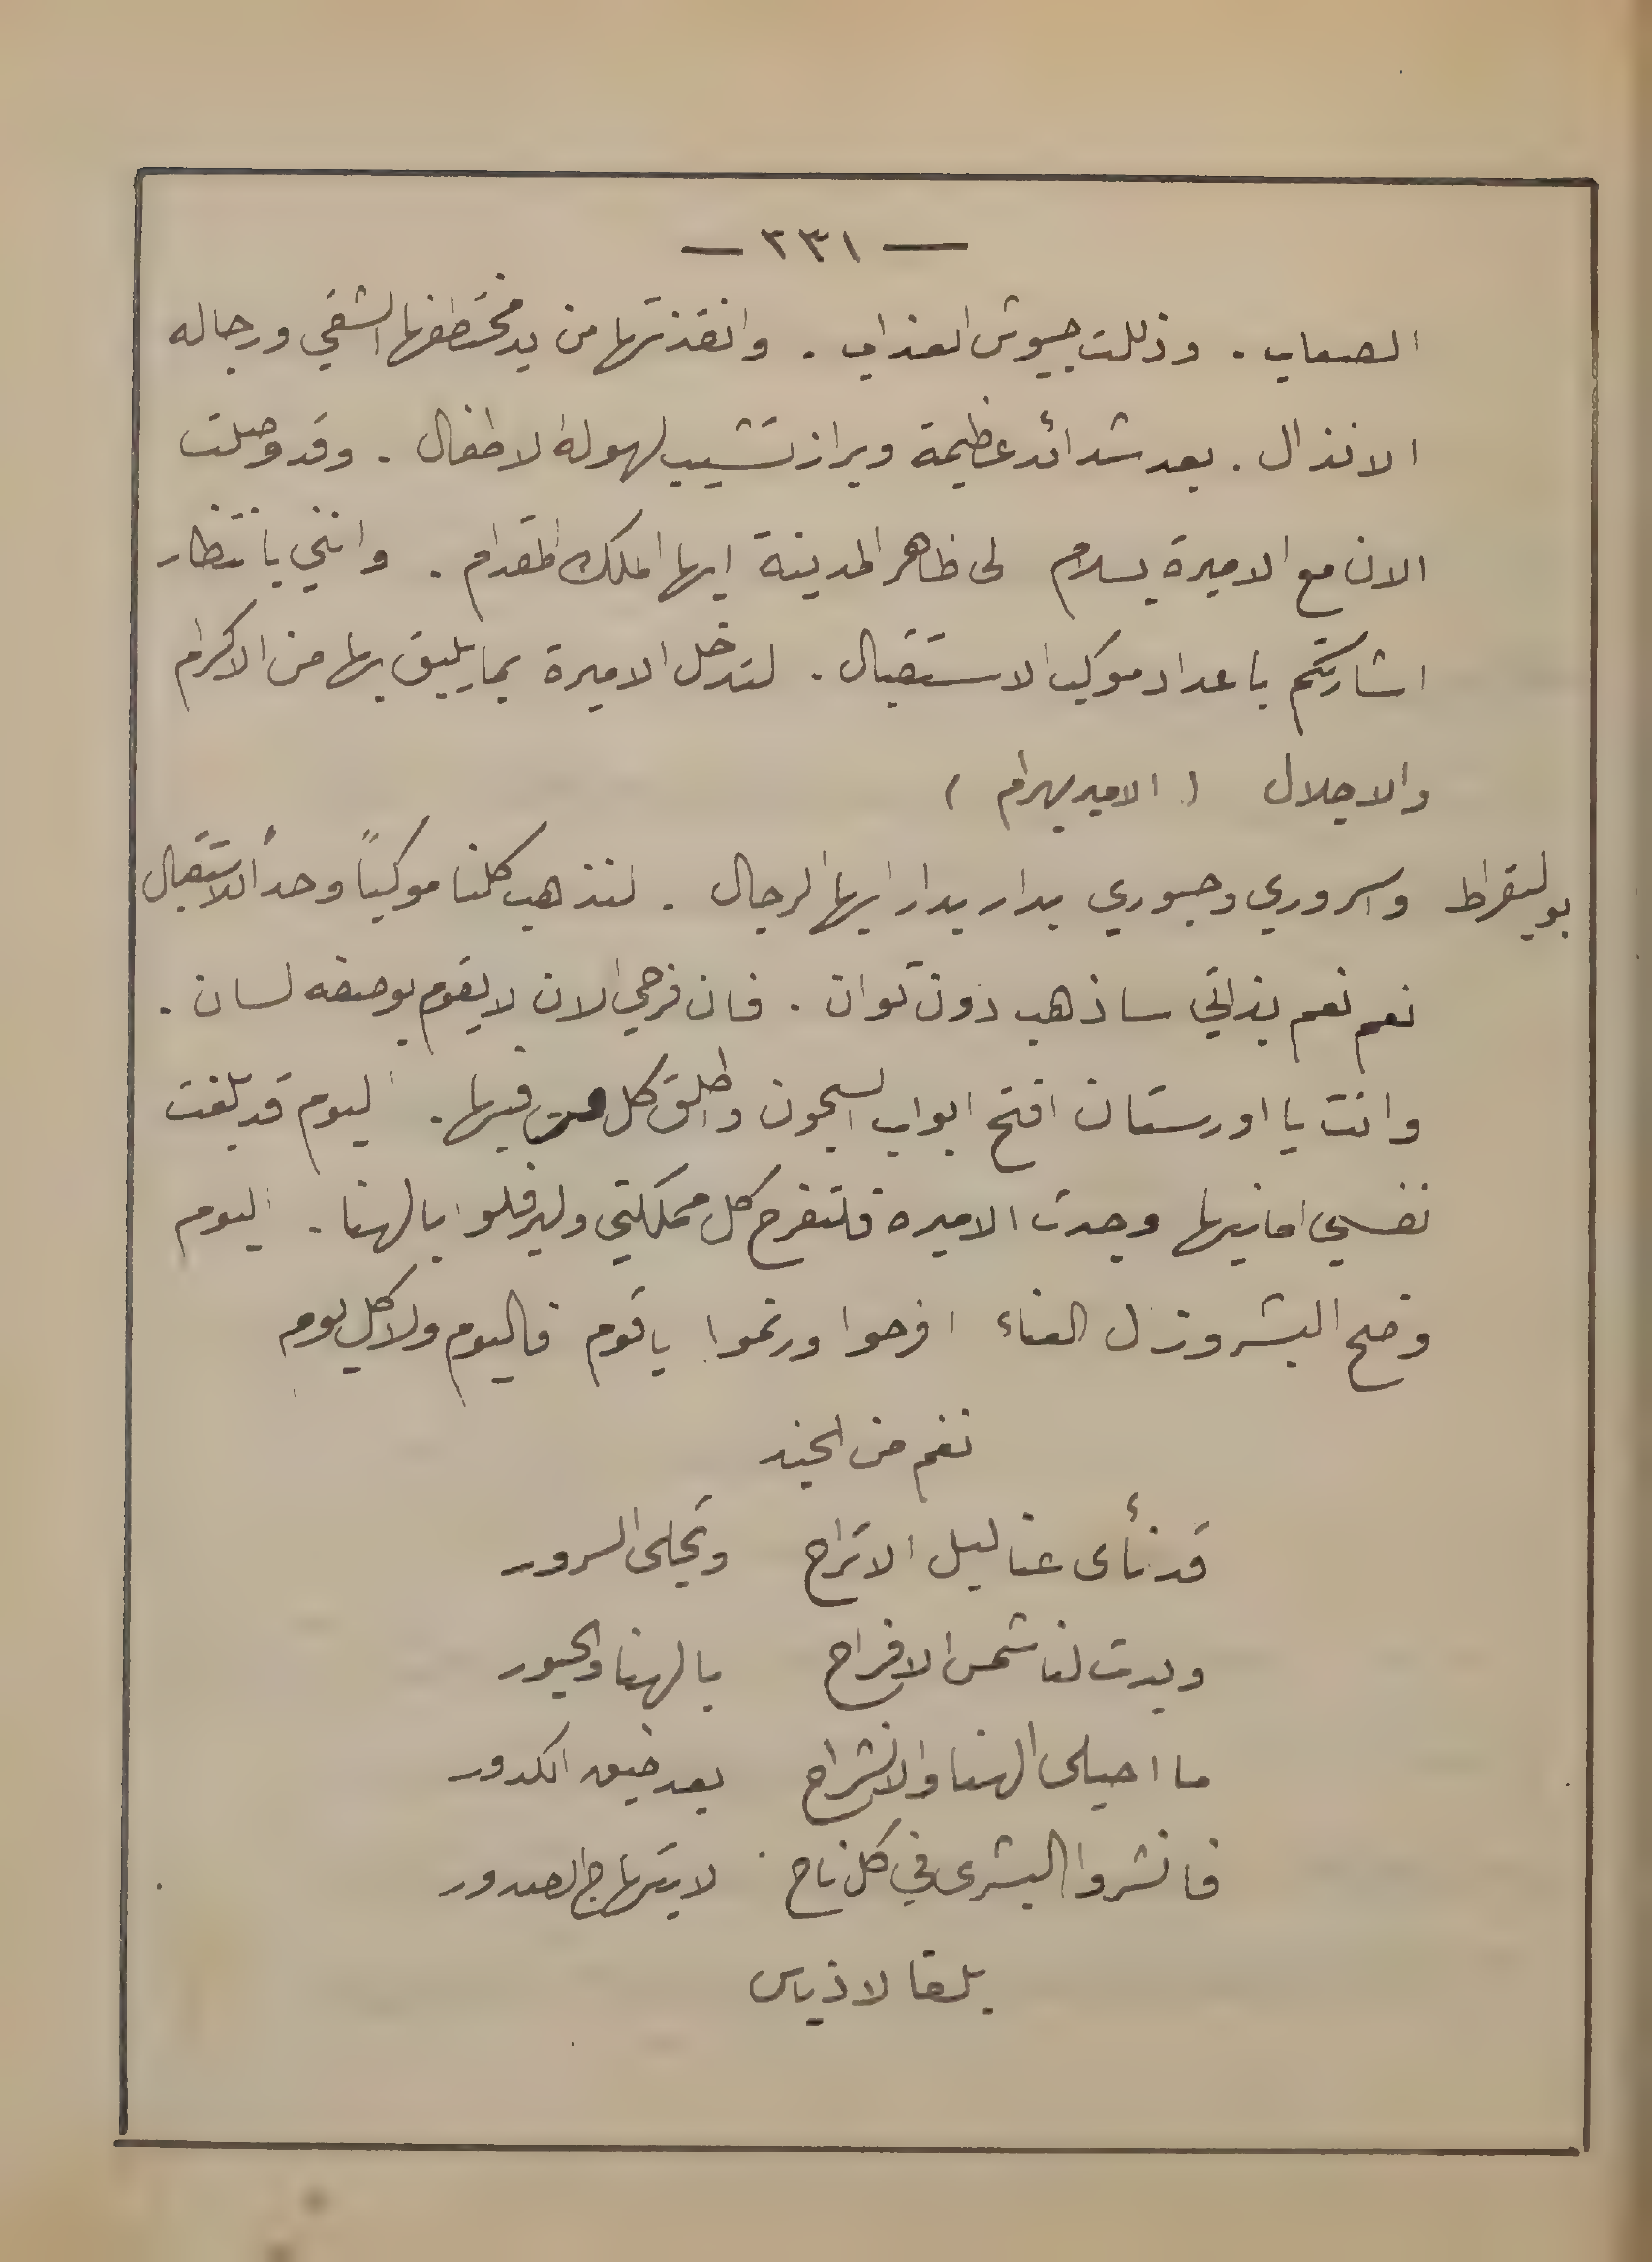 — ٣٣١ —
الصعاب . وذللت جيوش العذاب . وانقذتها من يد مختطفها الشقي ورجاله
الانذال . بعد شدائد عظيمة وبراز تشيب لهوله الاطفال . وقد وصلت
الان مع الاميرة بسلام لى ظاهر المدينة ايها الملك المقدام . وانني بانتظار
اشارتكم باعداد موكب الاستقبال . لتدخل الاميرة بما يليق بها من الاكرام
والاجلال ( الامير بهرام )
بوليقراط واسروري وحبوري بدار بدار ايها الرجال . لنذهب كلنا موكباً وحداً للاستقبال
نعم نعم بذاتي ساذهب دون توان . فان فرحي الان لا يقوم بوصفه لسان .
وانت يا اورستان افتح ابواب السجون واطلق كل من فيها . اليوم قد بلغت
نفسي امانيها وجدت الاميره فلتفرح كل مملكتي وليرفلوا بالهنا . اليوم
وضح البشر وزال العناء افرحوا ورنموا يا قوم فاليوم ولا كل يوم
نغم من الجند
قد نأى عنا ليل الاتراح وتجلى السرور
وبدت لنا شمس الافراح بالهنا والحبور
ما احيلى الهنا والانشراح بعد ضيق الكدور
فانشروا البشرى في كل ناح لابتهاج الصدور
بلقا لاذياس